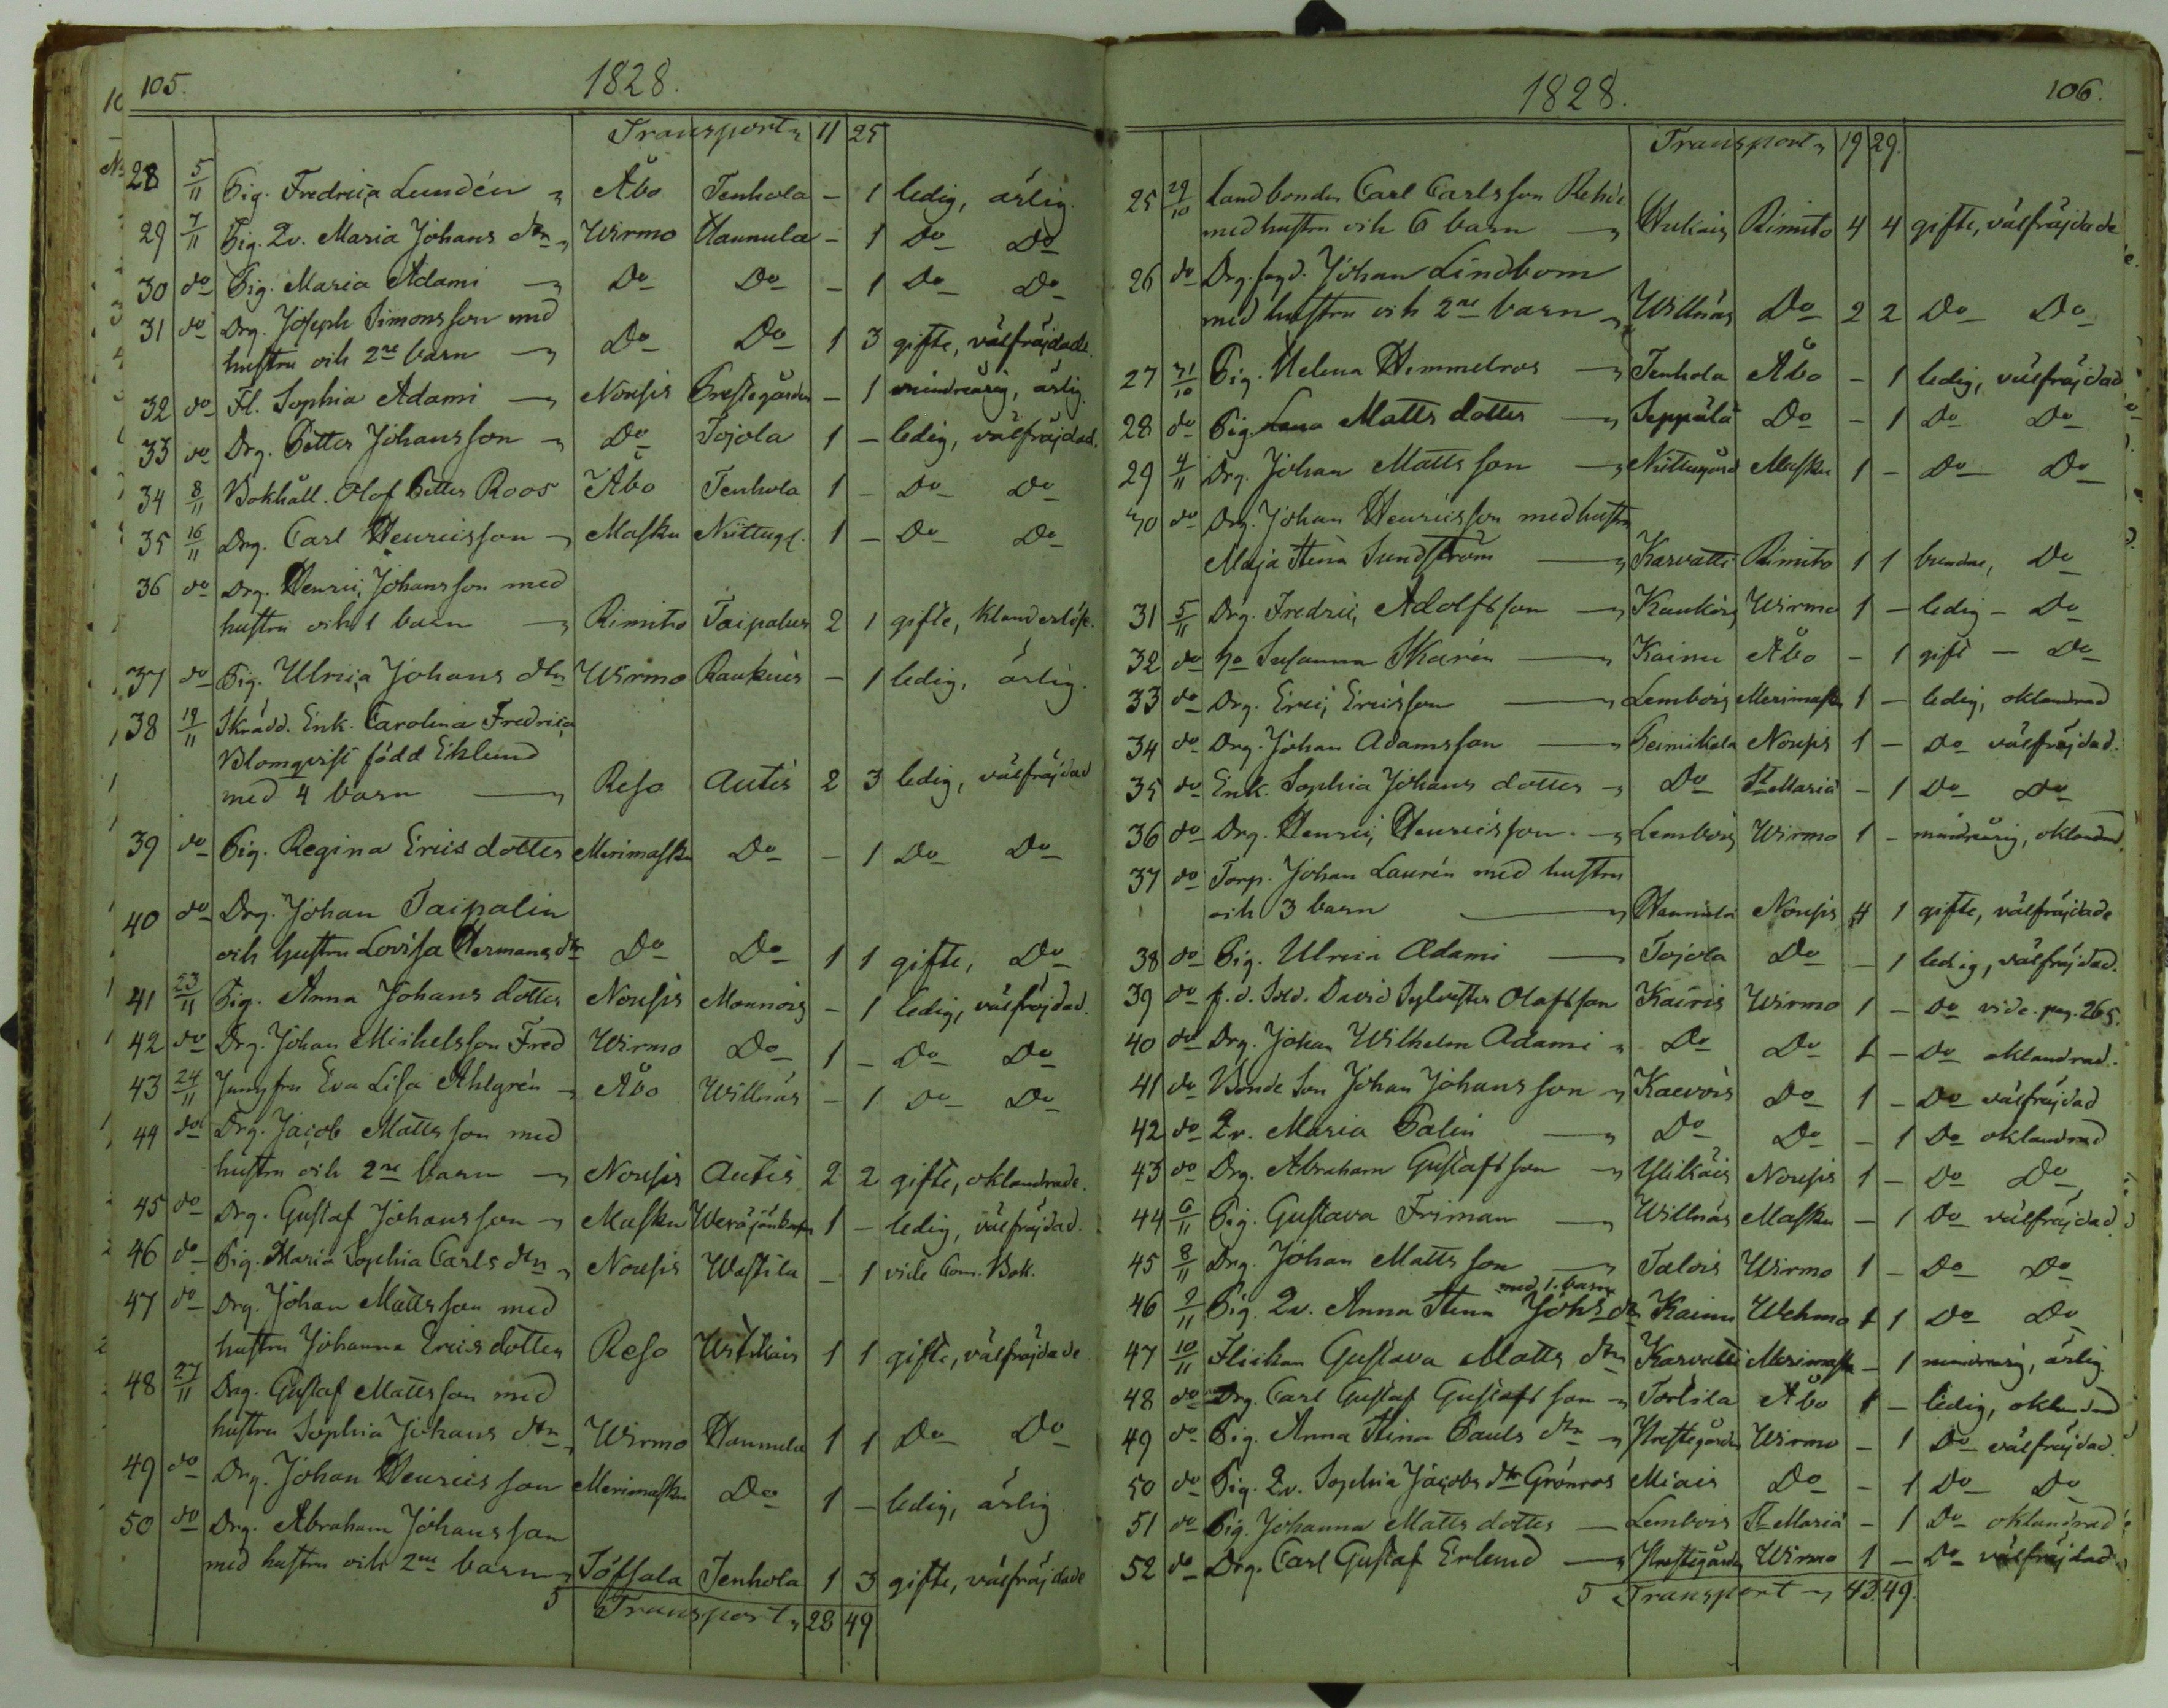 105.
1828.
Transport 11 25
28 5/11 Pig. Fredrica Lundén Åbo Tenhola - 1 ledig, ärlig.
29 7/11 Pig. Qv. Maria Johans dtr Wirmo Hannula - 1 Do Do
30 do Pig. Maria Adami Do Do - 1 Do Do
31 do Drg. Joseph Simonsson med
hustru och 2ne barn Do Do 1 3 gifte, välfräjdade.
32 do Fl. Sophia Adami Nousis Prestegården - 1 mindreårig, ärlig.
33 do Drg. Petter Johansson Do Tojola 1 - ledig, välfräjdad.
34 8/11 Bokhåll. Olof Petter Roos Åbo Tenhola 1 - Do Do
35 16/11 Drg. Carl Henricsson Masku Niittug. 1 - Do Do
36 do Drg. Henric Johansson med
hustru och 1 barn Rimito Taipalus 2 1 gifte, klanderlöse.
37 do Pig. Ulrica Johans dtr Wirmo Raukuis - 1 ledig, ärlig.
38 19/11 Skrädd. Enk. Carolina Fredrica
Blomqvist född Eklund
med 4 barn Reso Autis 2 3 ledig, välfräjdad
39 do Pig. Regina Erics dotter Merimasku Do - 1 Do Do
40 do Drg. Johan Taipalin
och hustru Lovisa Hermans dtr Do Do 1 1 gifte, Do
41 23/11 Pig. Anna Johans dotter Nousis Monnois - 1 ledig, välfräjdad.
42 do Drg. Johan Michelsson Fred Wirmo Do 1 - Do Do
43 24/11 Jungfru Eva Lisa Ahlgrén Åbo Willnäs - 1 Do Do
44 do Drg. Jacob Mattsson med
hustru och 2ne barn Nousis Autis 2 2 gifte, oklandrade.
45 do Drg. Gustaf Johansson Masku 1 - ledig, välfräjdad.
46 do Pig. Maria Sophia Carls dtr Nousis Wastila - 1 vide Com. Bok.
47 do Drg. Johan Mattsson med
hustru Johanna Erics dotter Reso 1 1 gifte, välfräjdade
48 27/11 Drg. Gustaf Mattsson med
hustru Sophia Johans dtr Wirmo Hannula 1 1 Do Do
49 do Drg. Johan Henricsson Merimasku Do 1 - ledig, ärlig
50 do Drg. Abraham Johansson
med hustru och 2ne barn Töfsala Tenhola 1 3 gifte, välfräjdade
5 Transport 28 49
1828.
106.
Transport 19 29.
25 29/10 Landbonden Carl Carlsson
med hustru och 6 barn Rimito 4 4 gifte, välfräjdade
26 do Drg. Johan Lindbom
med hustru och 2ne barn Willnäs Do 2 2 Do Do
27 31/10 Pig. Helena Himmelros Tenhola Åbo - 1 ledig, välfräjdad
28 do Pig. Lena Matts dotter Seppälä Do - 1 Do Do
29 4/11 Drg. Johan Mattsson Niittugård Masku 1 - Do Do
30 do Drg. Johan Henricsson med hustru
Maja Stina Sundström Karvatti Rimito 1 1 Do
31 5/11 Drg. Fredric Adolfsson Kaukois Wirmo 1 - ledig - Do
32 do Ho Susanna Skarén Kainu Åbo - 1 gift - Do
33 do Drg. Eric Ericsson Lembois Merimasku 1 - ledig, oklandrad
34 do Drg. Johan Adamsson Nousis 1 - Do välfräjdad.
35 do Enk. Sophia Johans dotter Do St Mariä - 1 Do Do
36 do Drg. Henric Henricsson Lembois Wirmo 1 - mindreårig, oklandrad.
37 do Torp. Johan Laurén med hustru
och 3 barn Hannula Nousis 4 1 gifte, välfräjdade
38 do Pig. Ulrica Adami Tojola Do - 1 ledig, välfräjdad.
39 do f. d. Sold. David Sylvester Olofsson Kairis Wirmo 1 - Do vide pag. 265.
40 do Drg. Johan Wilhelm Adami Do Do 1 - Do oklandrad.
41 do Bonde Son Johan Johansson Kaevois Do 1 - Do välfräjdad
42 do Qv. Maria Palin Do Do - 1 Do oklandrad
43 do Drg. Abraham Gustafsson Nousis 1 - Do Do
44 6/11 Pig. Gustava Friman Willnäs Masku - 1 Do välfräjdad
45 8/11 Drg. Johan Mattsson Talois Wirmo 1 - Do Do
46 9/11 Pig. Qv. Anna Stina Johs dtr med 1 barn Kainu Wehmo 1 1 Do Do
47 10/11 Flickan Gustava Matts dtr Karvatti Merimasku - 1 mindreårig, ärlig
48 do Drg. Carl Gustaf Gustafsson Tortila Åbo 1 - ledig, oklandrad
49 do Pig. Anna Stina Pauls dtr Prestegården Wirmo - 1 Do välfräjdad.
50 do Pig. Qv. Sophia Jacobs dtr Grönros Miais Do - 1 Do Do
51 do Pig. Johanna Matts dotter Lembois St Mariä - 1 Do oklandrad
52 do Drg. Carl Gustaf Erlund Prestegården Wirmo 1 - Do välfräjdad.
5 Transport 43 49.